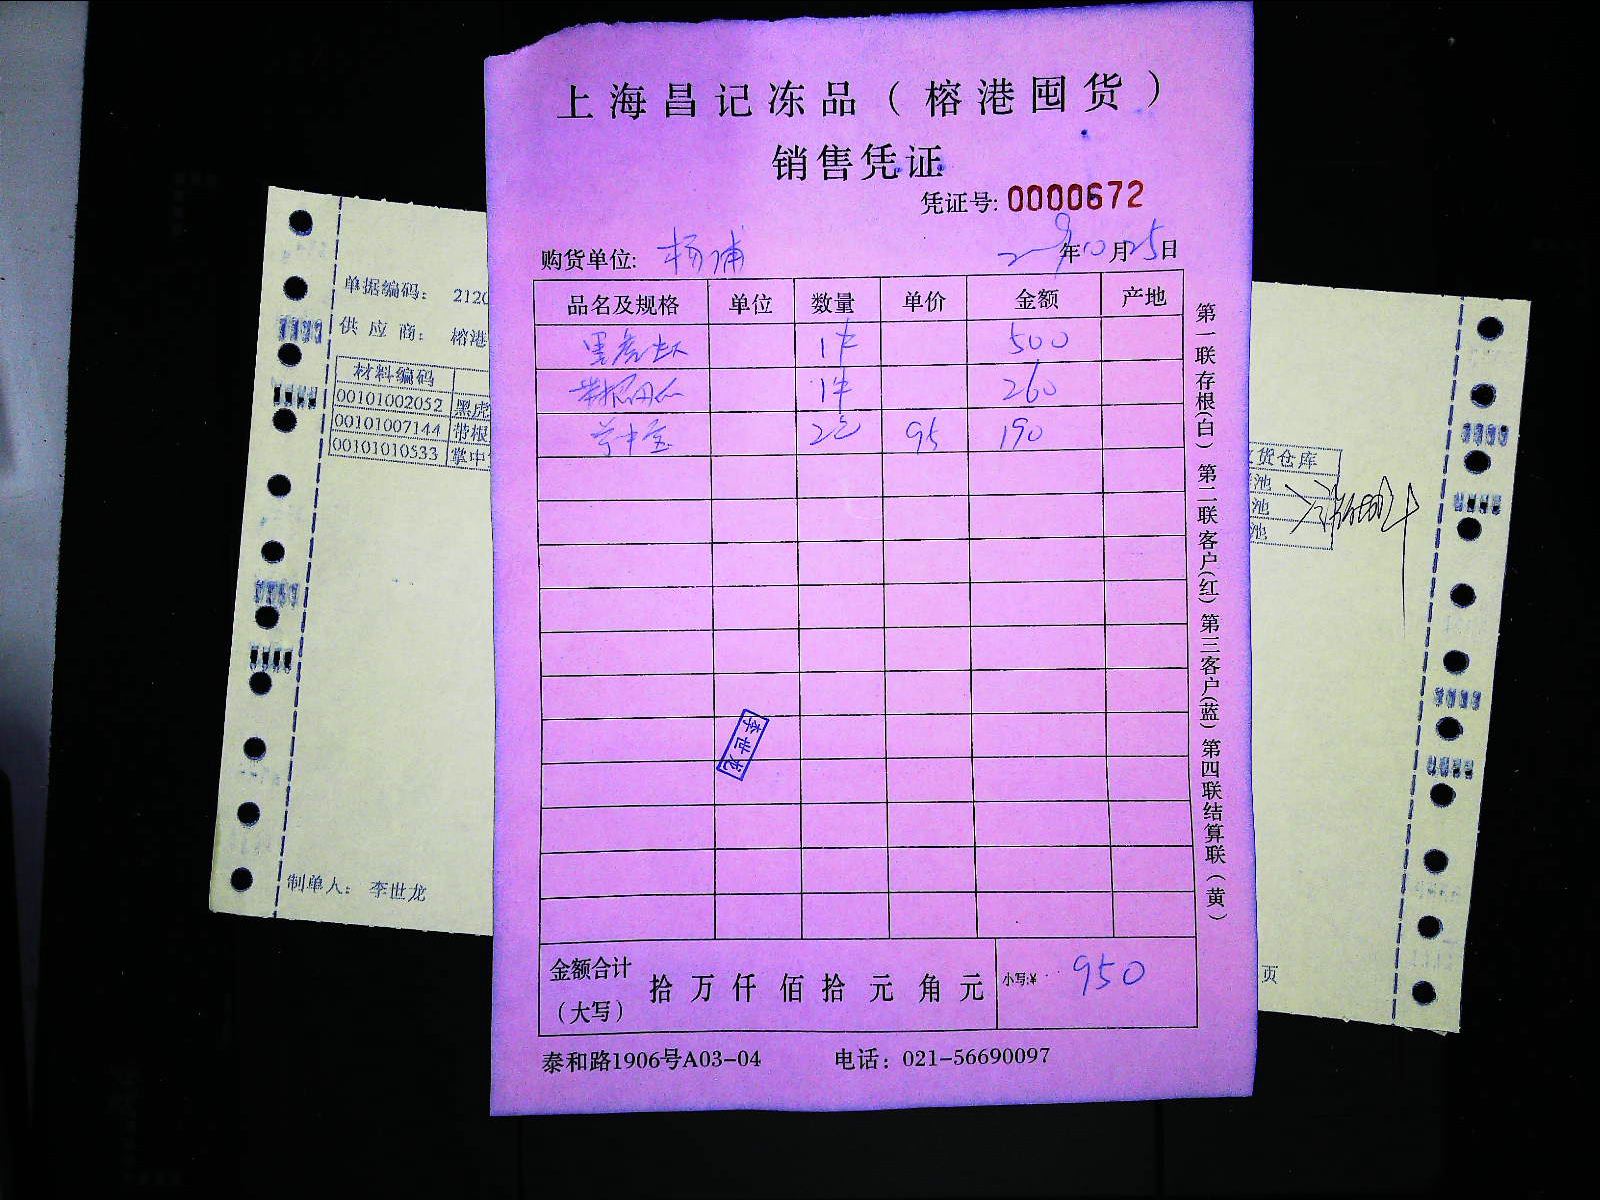 上海昌记冻品（榕港囤货）
销售凭证
凭证号: 0000672
购货单位: 杨浦 年10月25日
品名及规格 单位 数量 单价 金额 产地
黑虎虾 1件 500
带根 1件 260
掌中宝 2包 95 190
金额合计（大写） 拾万仟佰拾元角元 小写:¥ 950
泰和路1906号A03-04 电话：021-56690097
第一联存根(白) 第二联客户(红) 第三客户(蓝) 第四联结算联(黄)
李世龙
单据编码： 212
供应商： 榕港
材料编码
00101002052 黑虎
00101007144 带根
00101010533 掌中
制单人： 李世龙
货仓库
池
池
池
页